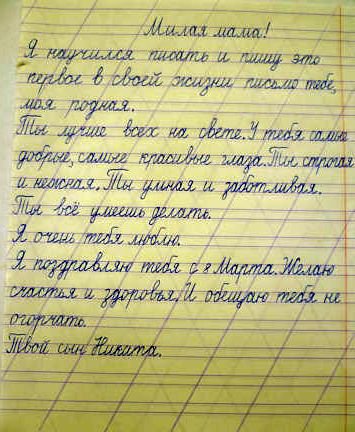 Милая мама!
Я научился писать и пишу это
первое в своей жизни письмо тебе,
моя родная.
Ты лучше всех на свете. У тебя самые
добрые, самые красивые глаза. Ты строгая
и нежная. Ты умная и заботливая.
Ты всё умеешь делать.
Я очень тебя люблю.
Я поздравляю тебя с 8 Марта. Желаю
счастья и здоровья. И обещаю тебя не
огорчать.
Твой сын Никита.